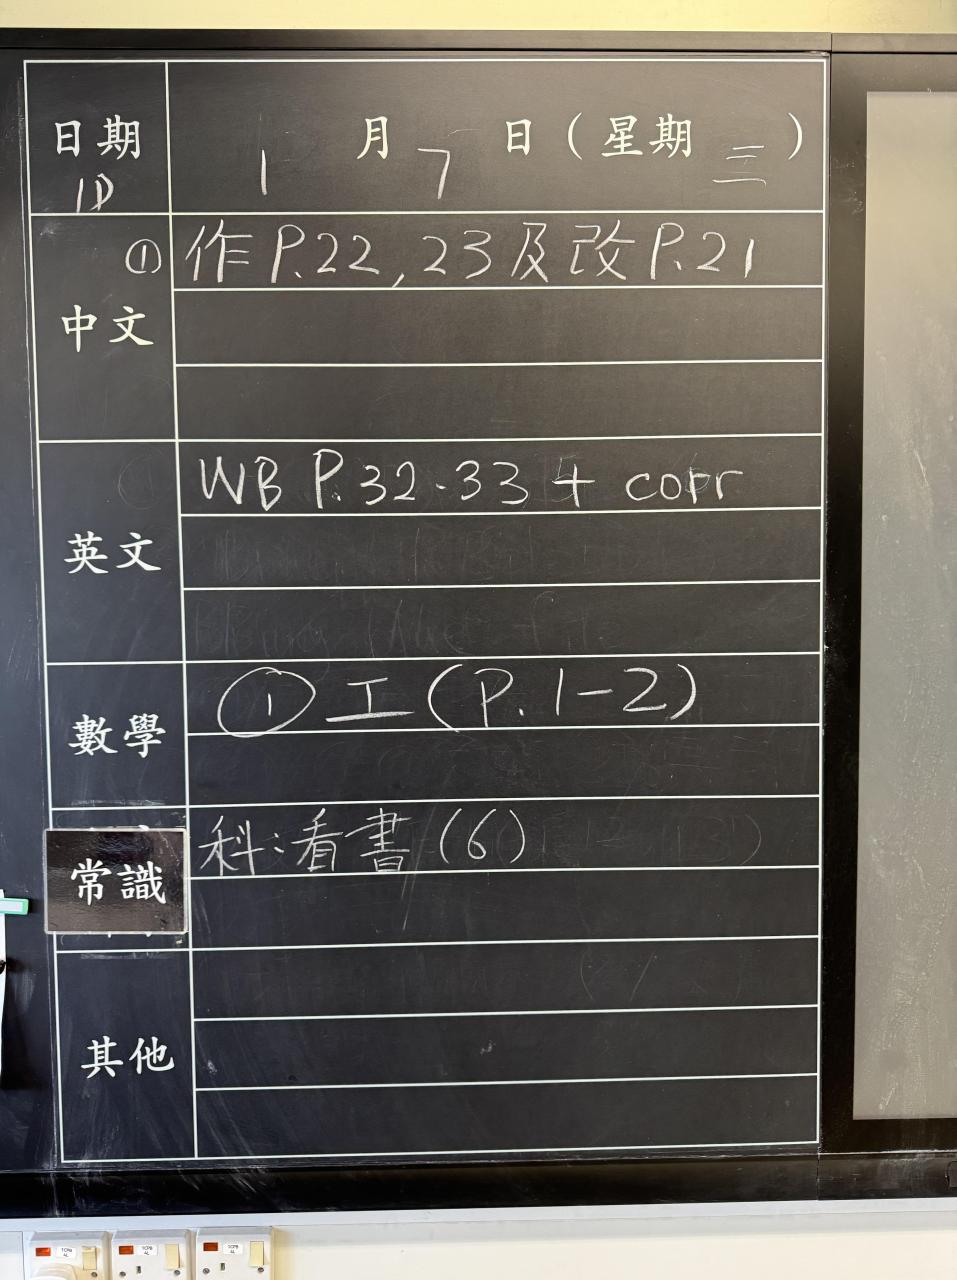 日期 1 月 7 日(星期 三)
1D
中文
① 作 P.22, 23 及改 P.21
英文
WB P.32-33 + corr
數學
① 工 (P. 1-2)
常識
科:看書 (6)
其他
TCPB 4L TCPB 4L TCPB 4L